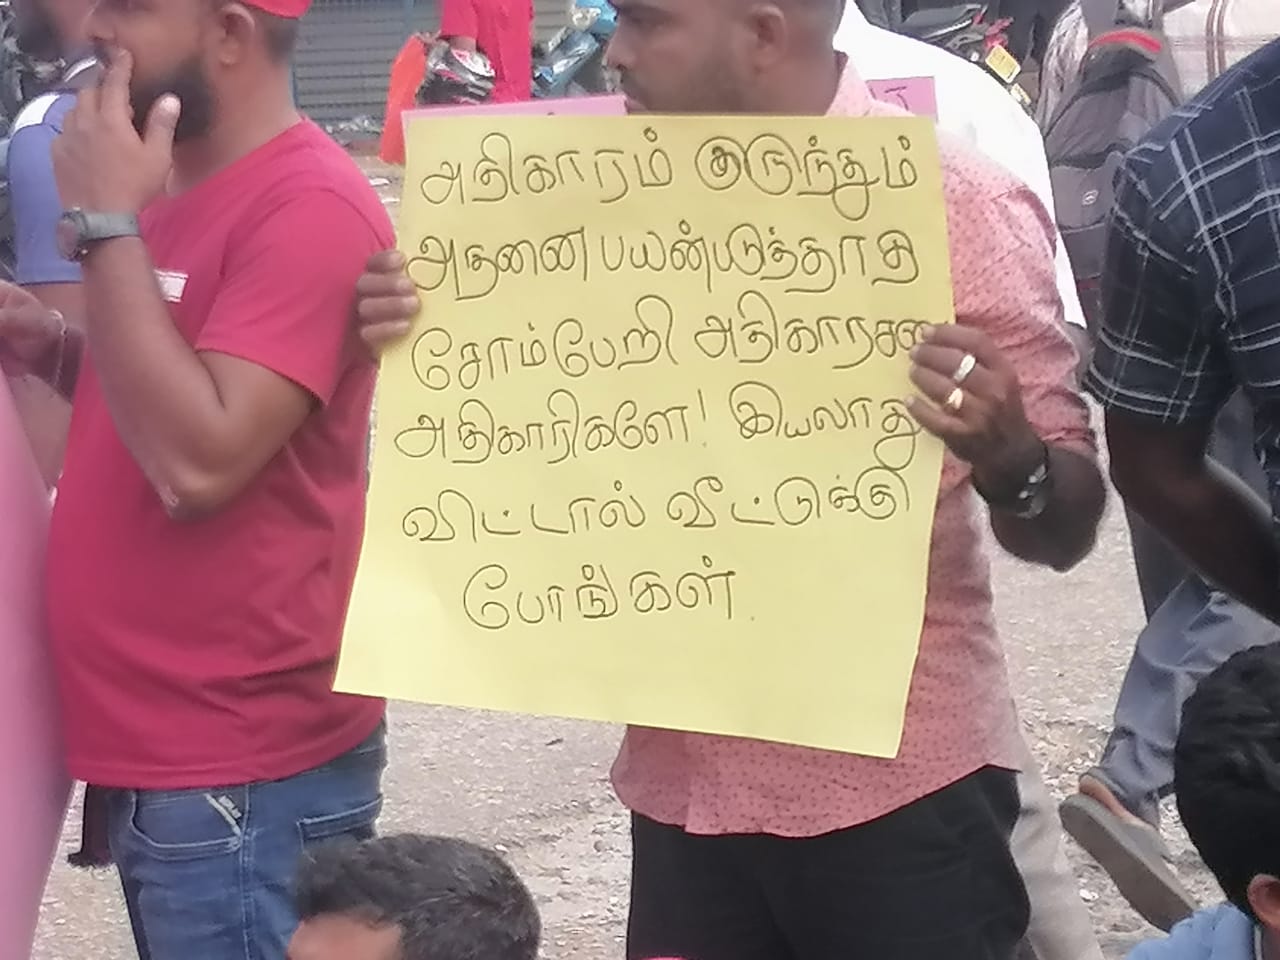 அதிகாரம் இருந்தும்
அதனை பயன்படுத்தாத
சோம்பேறி அதிகாரசபை
அதிகாரிகளே! இயலாது
விட்டால் வீட்டுக்கு
போங்கள்.